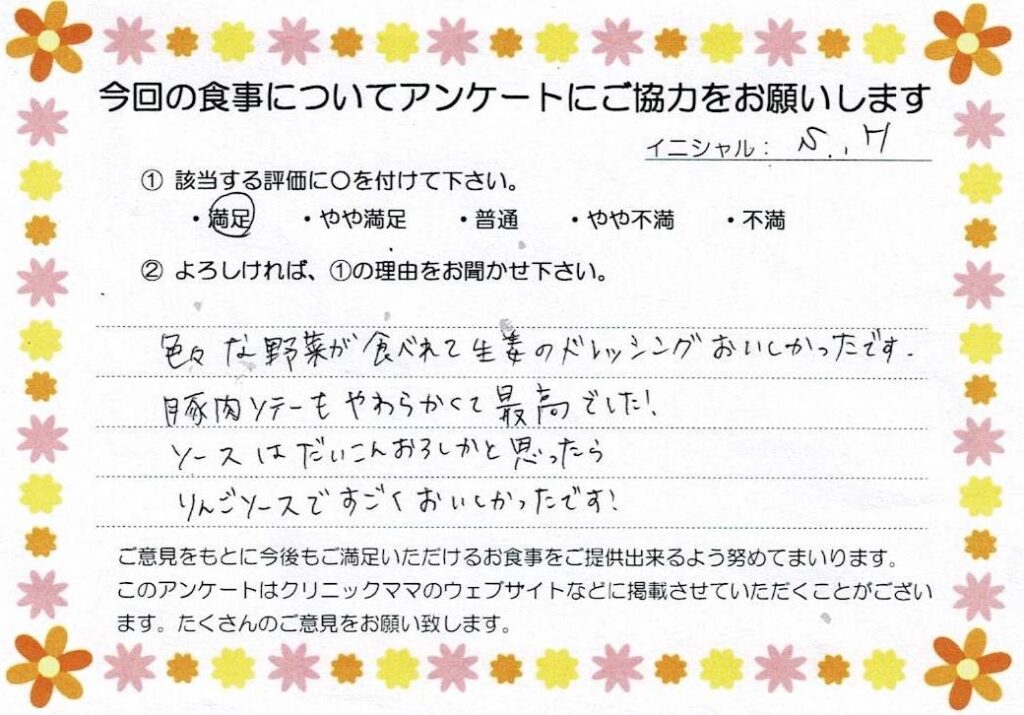 今回の食事についてアンケートにご協力をお願いします
イニシャル： S.,H
① 該当する評価に〇を付けて下さい。
・満足 ・やや満足 ・普通 ・やや不満 ・不満
② よろしければ、①の理由をお聞かせ下さい。
色々な野菜が食べれて生姜のドレッシングおいしかったです.
豚肉ソテーもやわらかくて最高でした!
ソースはだいこんおろしかと思ったら
りんごソースですごくおいしかったです!
ご意見をもとに今後もご満足いただけるお食事をご提供出来るよう努めてまいります。
このアンケートはクリニックママのウェブサイトなどに掲載させていただくことがござい
ます。たくさんのご意見をお願い致します。